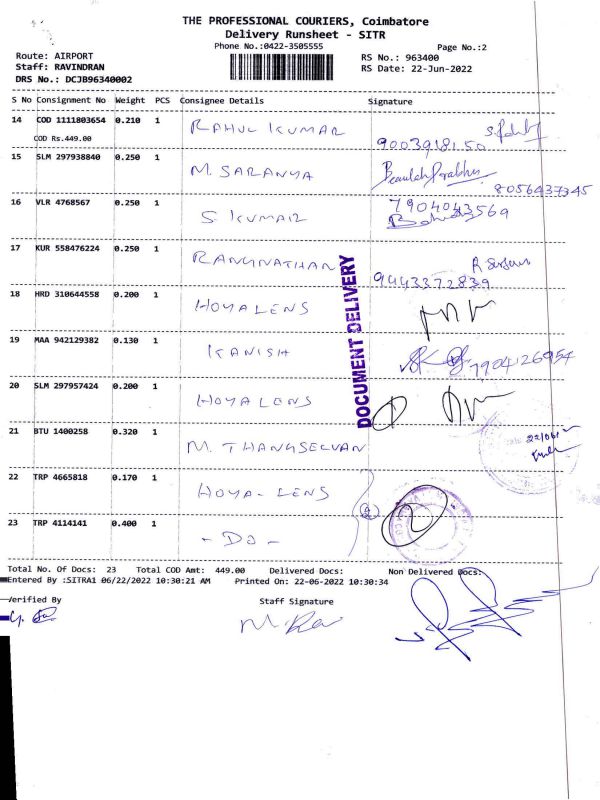 THE PROFESSIONAL COURIERS, Coimbatore
Delivery Runsheet - SITR
Phone No.:0422-3505555
Page No.:2
Route: AIRPORT
RS No.: 963400
Staff: RAVINDRAN
RS Date: 22-Jun-2022
DRS No.: DCJB96340002
S No Consignment No Weight PCS Consignee Details Signature
14 COD 1111803654 0.210 1 RAHUL KUMAR
COD Rs.449.00 9003918150
15 SLM 297938840 0.250 1 M. SARANYA Beaulah Prabhu
8056437345
16 VLR 4768567 0.250 1 S KUMAR 7904043569
17 KUR 558476224 0.250 1 RANGNATHAN
9443372839
18 HRD 310644558 0.200 1 HOYA LENS
19 MAA 942129382 0.130 1 KANISH 7904126954
20 SLM 297957424 0.200 1 HOYA LENS
DOCUMENT DELIVERY
21 BTU 1400258 0.320 1 M. THANGSELVAN
22 TRP 4665818 0.170 1 HOYA - LENS
23 TRP 4114141 0.400 1 - DO -
Total No. Of Docs: 23 Total COD Amt: 449.00 Delivered Docs: Non Delivered Docs:
Entered By :SITRA1 06/22/2022 10:30:21 AM Printed On: 22-06-2022 10:30:34
Verified By Staff Signature